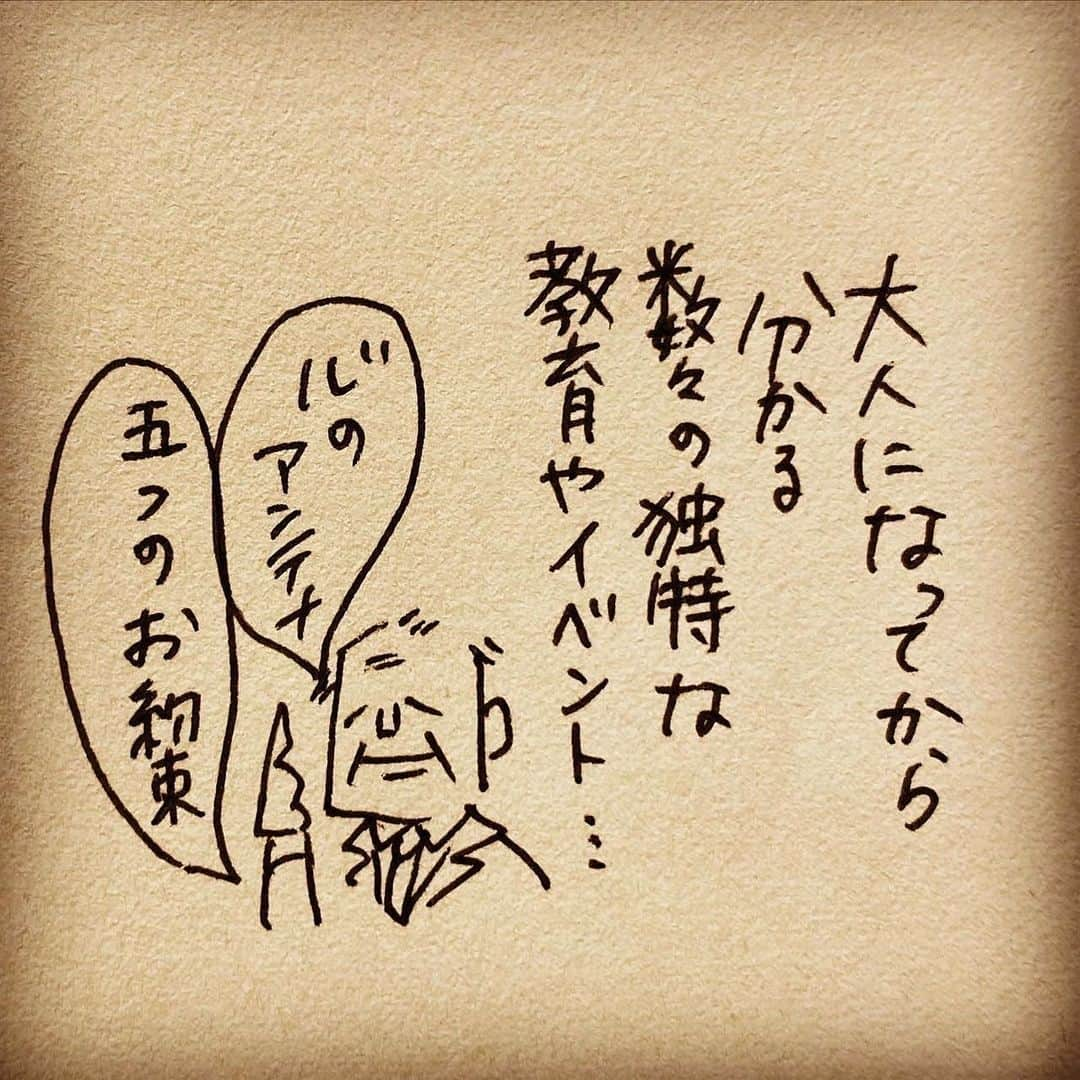 大人になってから
分かる
数々の独特な
教育やイベント…
心の
アンテナ
五つのお約束